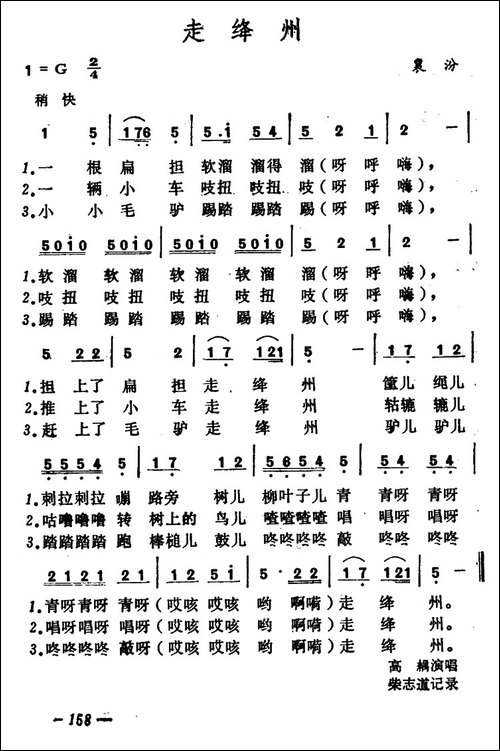 走绛州
1=G 2/4 襄汾
稍快
1 5 | 176 5 | 55·i 54 | 5 2 1 | 2 — |
1.一根扁担软溜溜得溜(呀呼嗨),
2.一辆小车吱扭吱扭吱(呀呼嗨),
3.小小毛驴踢踏踢踢踏(呀呼嗨),
5010 5010 | 5010 5010 | 5 2 1 | 2 — |
1.软溜软溜软溜软溜溜(呀呼嗨),
2.吱扭吱扭吱扭吱扭吱(呀呼嗨),
3.踢踏踢踏踢踏踢踏踢(呀呼嗨),
5 22 | 1 2 | 17 121 | 5 — | 22 22 |
1.担上了扁担走绛州 筐儿绳儿
2.推上了小车走绛州 轱辘辘儿
3.赶上了毛驴走绛州 驴儿驴儿
5554 5 | 17 12 | 5654 5 | 54 54 |
1.刺拉刺拉嘣路旁树儿柳叶子儿青青呀青呀
2.咕噜噜噜转树上的鸟儿喳喳喳喳唱唱呀唱呀
3.踏踏踏踏跑棒槌儿鼓儿咚咚咚咚敲咚咚咚咚
2121 21 | 12 5i | 5· 22 | 17 121 | 5 — |
1.青呀青呀青呀(哎咳哎咳哟啊嗬)走绛州。
2.唱呀唱呀唱呀(哎咳哎咳哟啊嗬)走绛州。
3.咚咚咚咚敲呀(哎咳哎咳哟啊嗬)走绛州。
高耦演唱
柴志道记录
— 158 —